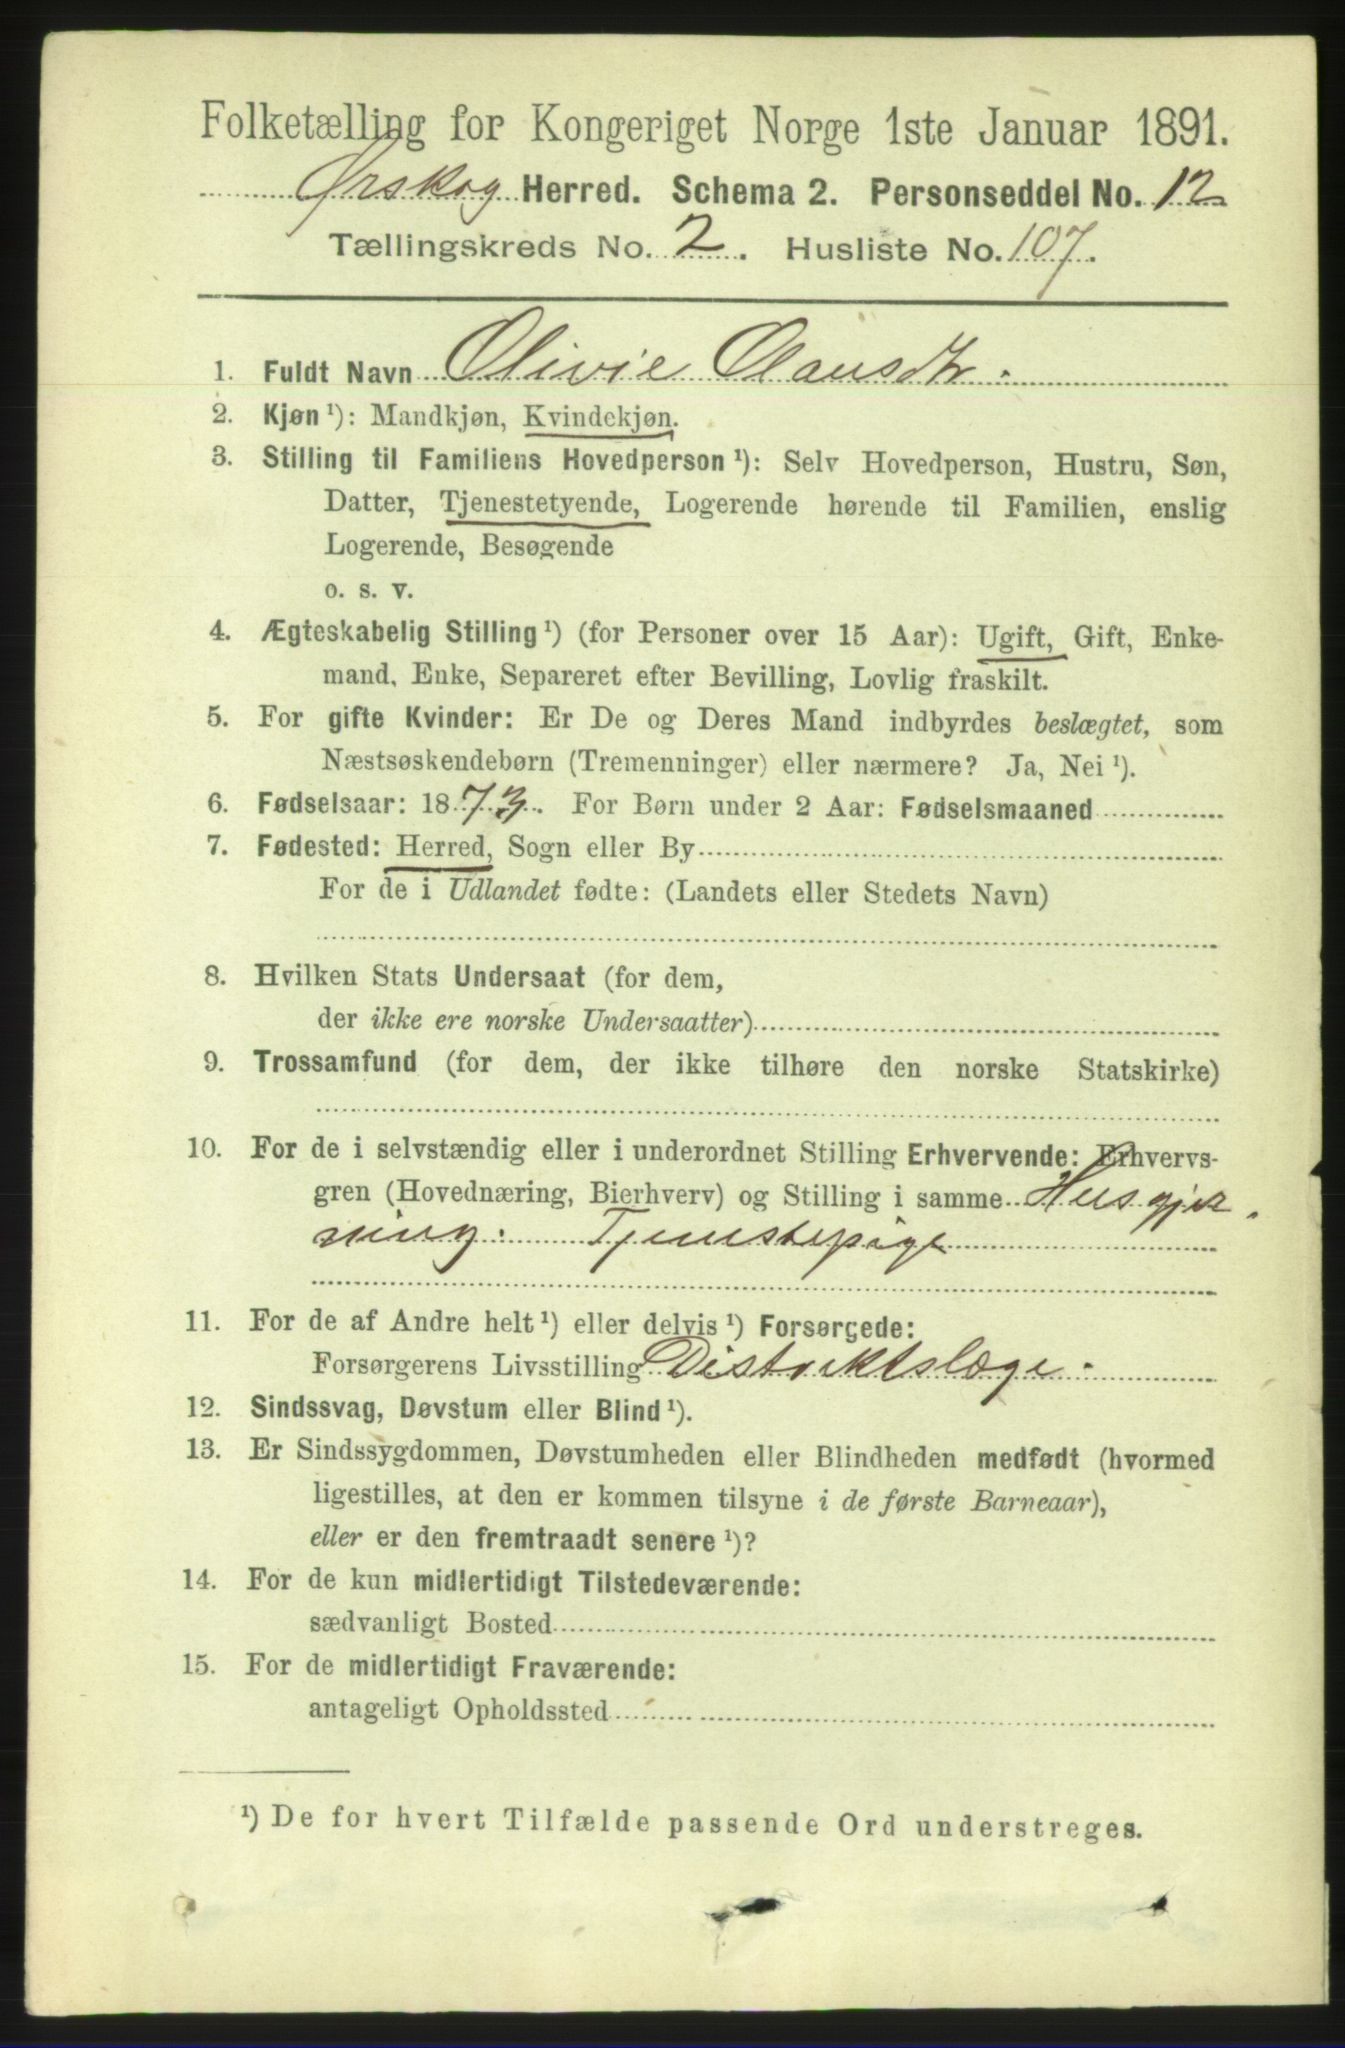 Folketælling for Kongeriget Norge 1ste Januar 1891.
Ørskog Herred. Schema 2. Personseddel No. 12
Tællingskreds No. 2. Husliste No. 107.
1. Fuldt Navn Olivie Olausdtr.
2. Kjøn ¹): Mandkjøn, Kvindekjøn.
3. Stilling til Familiens Hovedperson ¹): Selv Hovedperson, Hustru, Søn,
Datter, Tjenestetyende, Logerende hørende til Familien, enslig
Logerende, Besøgende
o. s. v.
4. Ægteskabelig Stilling ¹) (for Personer over 15 Aar): Ugift, Gift, Enke-
mand, Enke, Separeret efter Bevilling, Lovlig fraskilt.
5. For gifte Kvinder: Er De og Deres Mand indbyrdes beslægtet, som
Næstsøskendebørn (Tremenninger) eller nærmere? Ja, Nei ¹).
6. Fødselsaar: 1873. For Børn under 2 Aar: Fødselsmaaned
7. Fødested: Herred, Sogn eller By
For de i Udlandet fødte: (Landets eller Stedets Navn)
8. Hvilken Stats Undersaat (for dem,
der ikke ere norske Undersaatter)
9. Trossamfund (for dem, der ikke tilhøre den norske Statskirke)
10. For de i selvstændig eller i underordnet Stilling Erhvervende: Erhvervs-
gren (Hovednæring, Bierhverv) og Stilling i samme Husgjer
ning. Tjenstepige
11. For de af Andre helt ¹) eller delvis ¹) Forsørgede:
Forsørgerens Livsstilling Distriktslæge.
12. Sindssvag, Døvstum eller Blind ¹).
13. Er Sindssygdommen, Døvstumheden eller Blindheden medfødt (hvormed
ligestilles, at den er kommen tilsyne i de første Barneaar),
eller er den fremtraadt senere ¹)?
14. For de kun midlertidigt Tilstedeværende:
sædvanligt Bosted
15. For de midlertidigt Fraværende:
antageligt Opholdssted
¹) De for hvert Tilfælde passende Ord understreges.